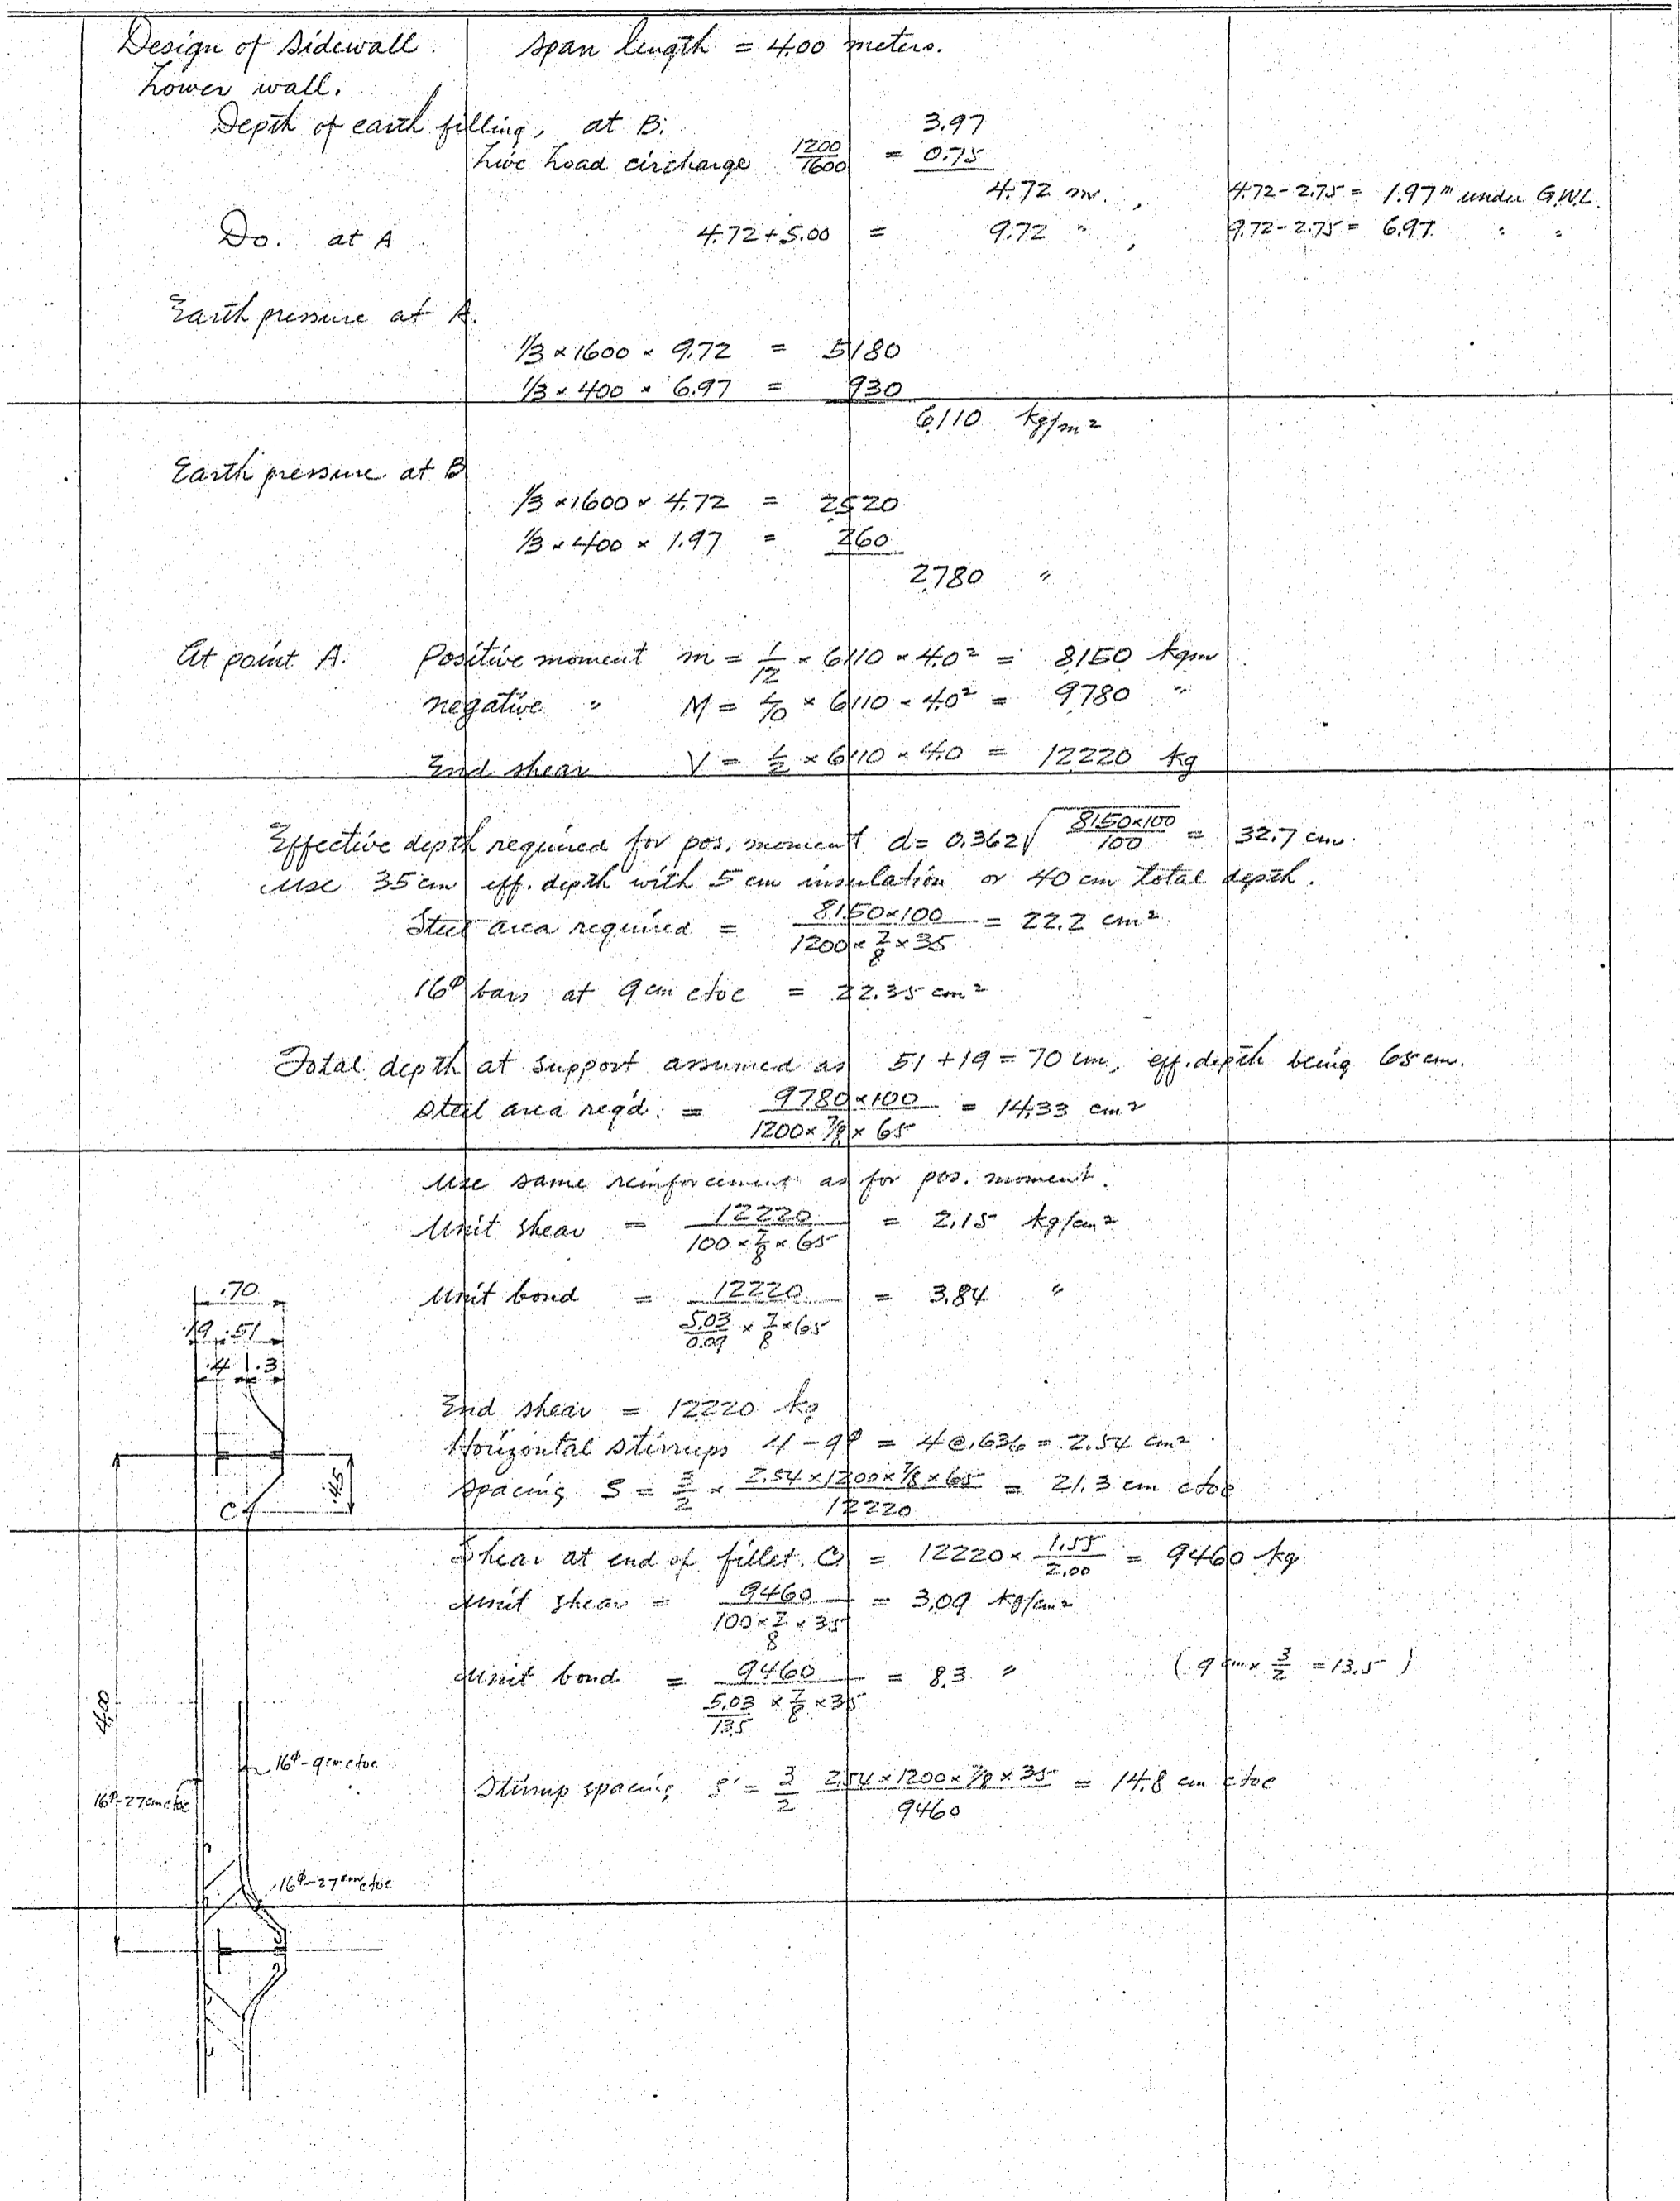 Design of Sidewall. Span length = 4.00 meters.
Lower wall.
Depth of earth filling, at B: 3.97
Live Load circharge 1200/1600 = 0.75
4.72 m. , 4.72 - 2.75 = 1.97 m under G.W.L.
Do. at A 4.72 + 5.00 = 9.72 " , 9.72 - 2.75 = 6.97 " "
Earth pressure at A.
1/3 × 1600 × 9.72 = 5180
1/3 × 400 × 6.97 = 930
6110 kg/m²
Earth pressure at B
1/3 × 1600 × 4.72 = 2520
1/3 × 400 × 1.97 = 260
2780 "
At point A. Positive moment m = 1/12 × 6110 × 4.0² = 8150 kgm
negative " M = 1/10 × 6110 × 4.0² = 9780 "
End shear V = 1/2 × 6110 × 4.0 = 12220 kg
Effective depth required for pos. moment d = 0.362 √(8150×100/100) = 32.7 cm.
Use 35 cm eff. depth with 5 cm insulation or 40 cm total depth.
Steel area required = 8150×100/(1200 × 7/8 × 35) = 22.2 cm²
16φ bars at 9 cm ctoc = 22.35 cm²
Total depth at support assumed as 51 + 19 = 70 cm, eff. depth being 65 cm.
Steel area reqd. = 9780×100/(1200 × 7/8 × 65) = 14.33 cm²
Use same reinforcement as for pos. moment.
Unit shear = 12220/(100 × 7/8 × 65) = 2.15 kg/cm²
Unit bond = 12220/(5.03/0.09 × 7/8 × 65) = 3.84 "
.70
.19 .51
.4 .3
End shear = 12220 kg
Horizontal stirrups 4 - 9φ = 4 @ .636 = 2.54 cm²
Spacing S = 3/2 × 2.54 × 1200 × 7/8 × 65/12220 = 21.3 cm ctoc
.45
C
Shear at end of fillet. C = 12220 × 1.55/2.00 = 9460 kg
Unit shear = 9460/(100 × 7/8 × 35) = 3.09 kg/cm²
Unit bond = 9460/(5.03/13.5 × 7/8 × 35) = 8.3 " (9 cm × 3/2 = 13.5)
4.00
16φ - 9 cm ctoc
16φ - 27 cm ctoc
Stirrup spacing S' = 3/2 2.54 × 1200 × 7/8 × 35/9460 = 14.8 cm ctoc
16φ - 27 cm ctoc